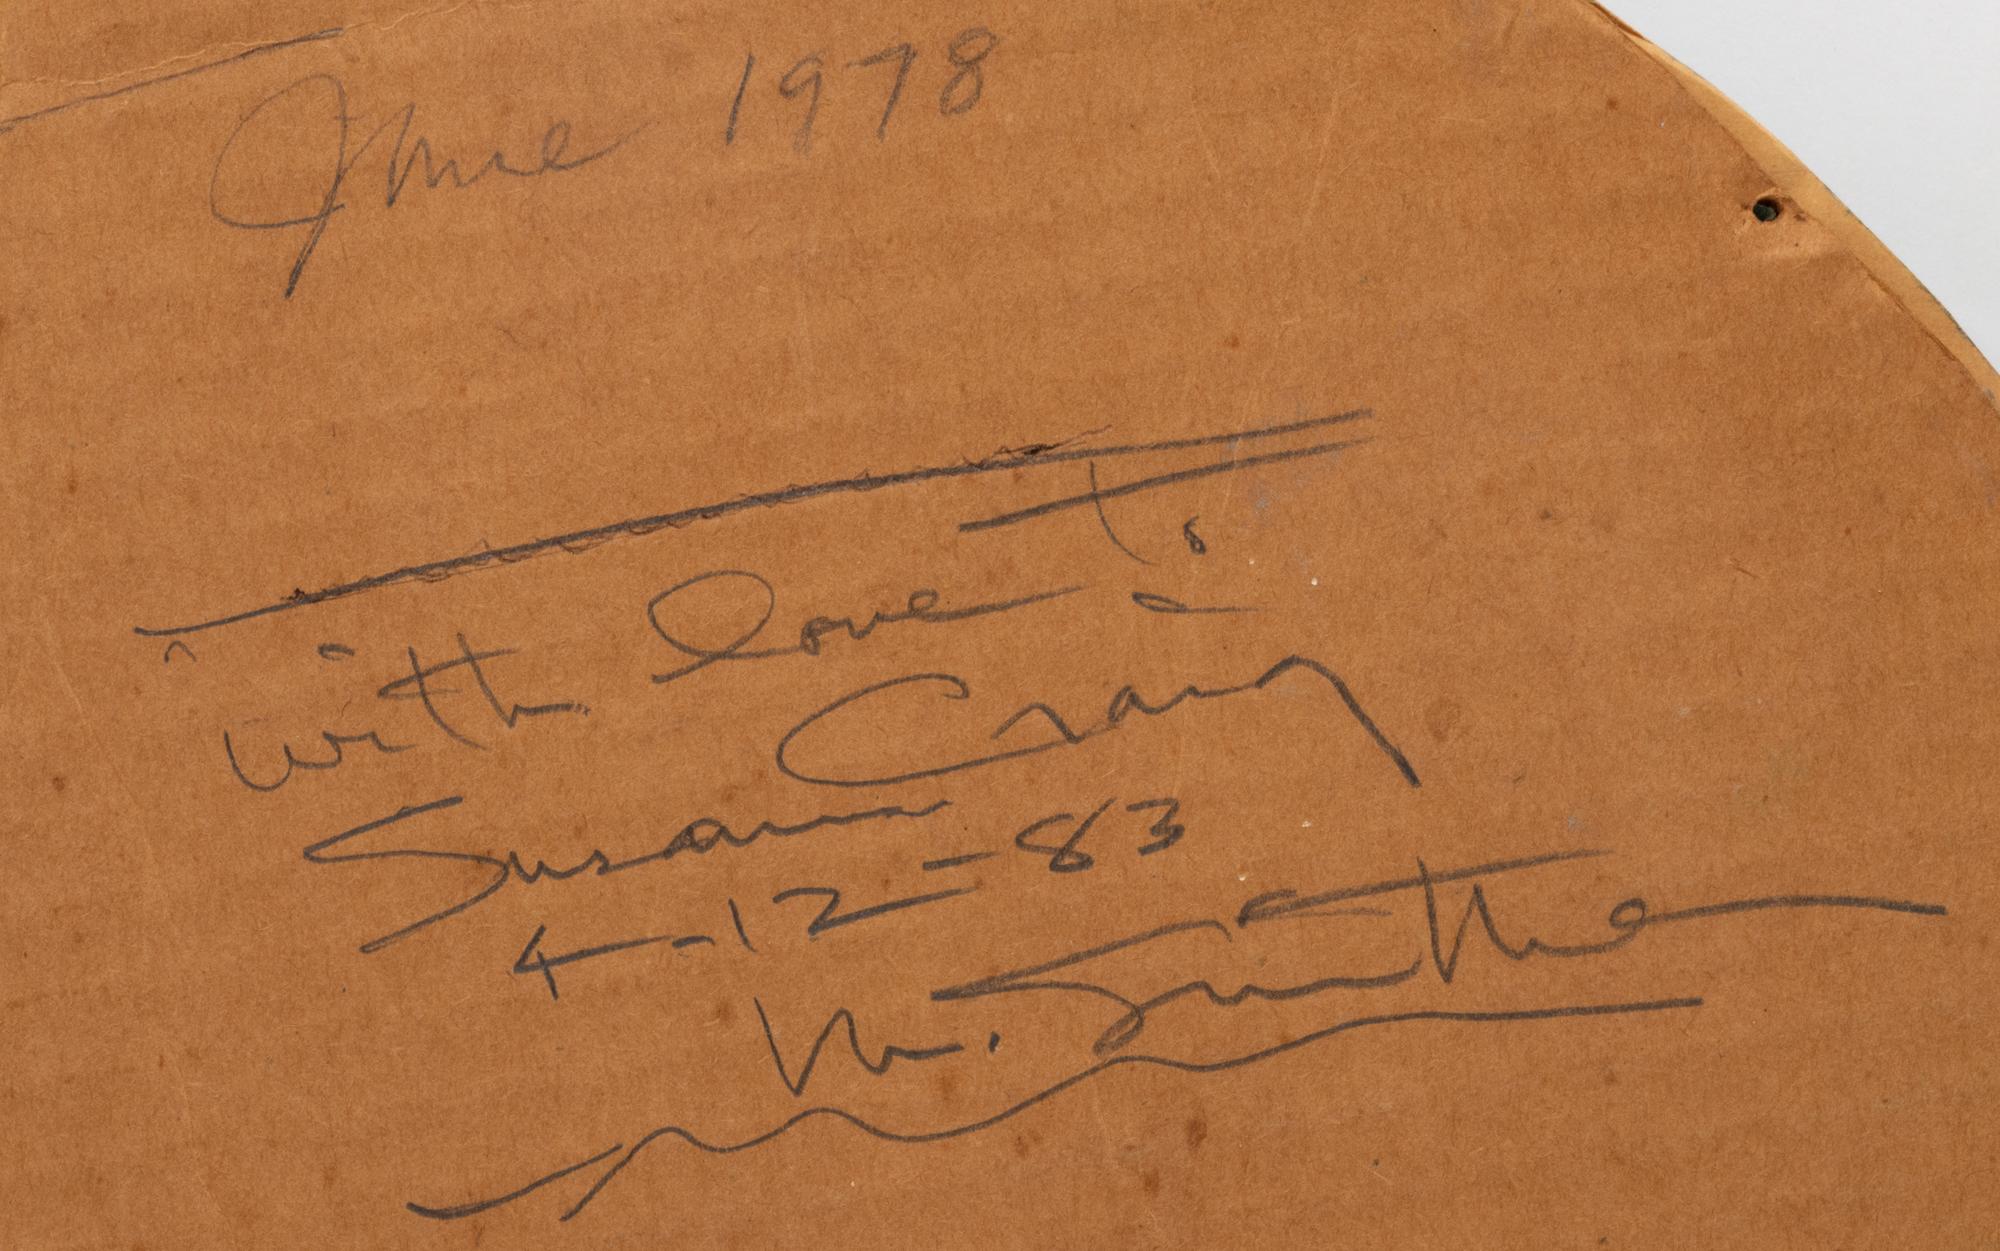 June 1978
with love to
Susan Craig
4-12-83
M. Smither